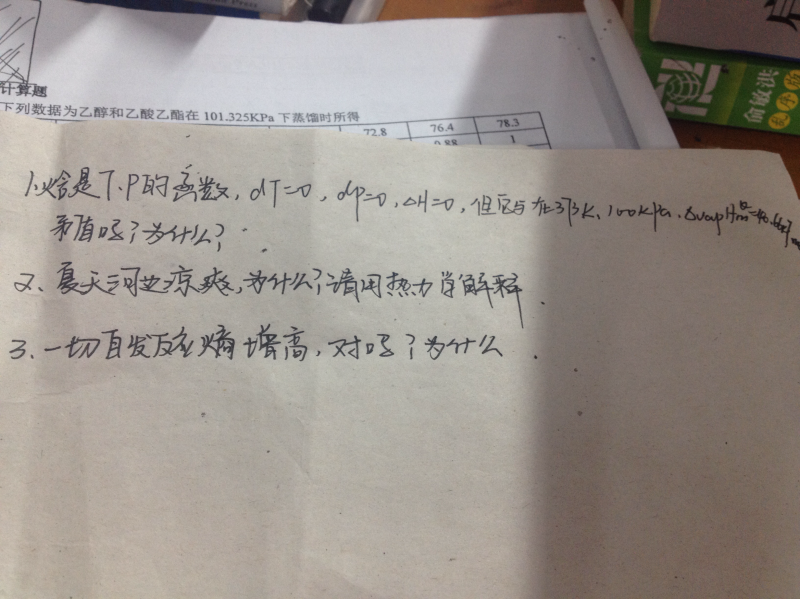 计算题
下列数据为乙醇和乙酸乙酯在 101.325KPa 下蒸馏时所得
72.8 76.4 78.3
0.88 1
俞敏洪
1.焓是T.P的函数, dT=0, dp=0, △H=0, 但它与在373K、100kPa. △vapHm
矛盾吗?为什么?
2、夏天河边凉爽,为什么?请用热力学解释.
3、一切自发反应熵增高,对吗?为什么.